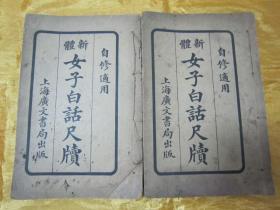 自修適用
新體
女子白話尺牘
上海廣文書局出版
自修適用
新體
女子白話尺牘
上海廣文書局出版